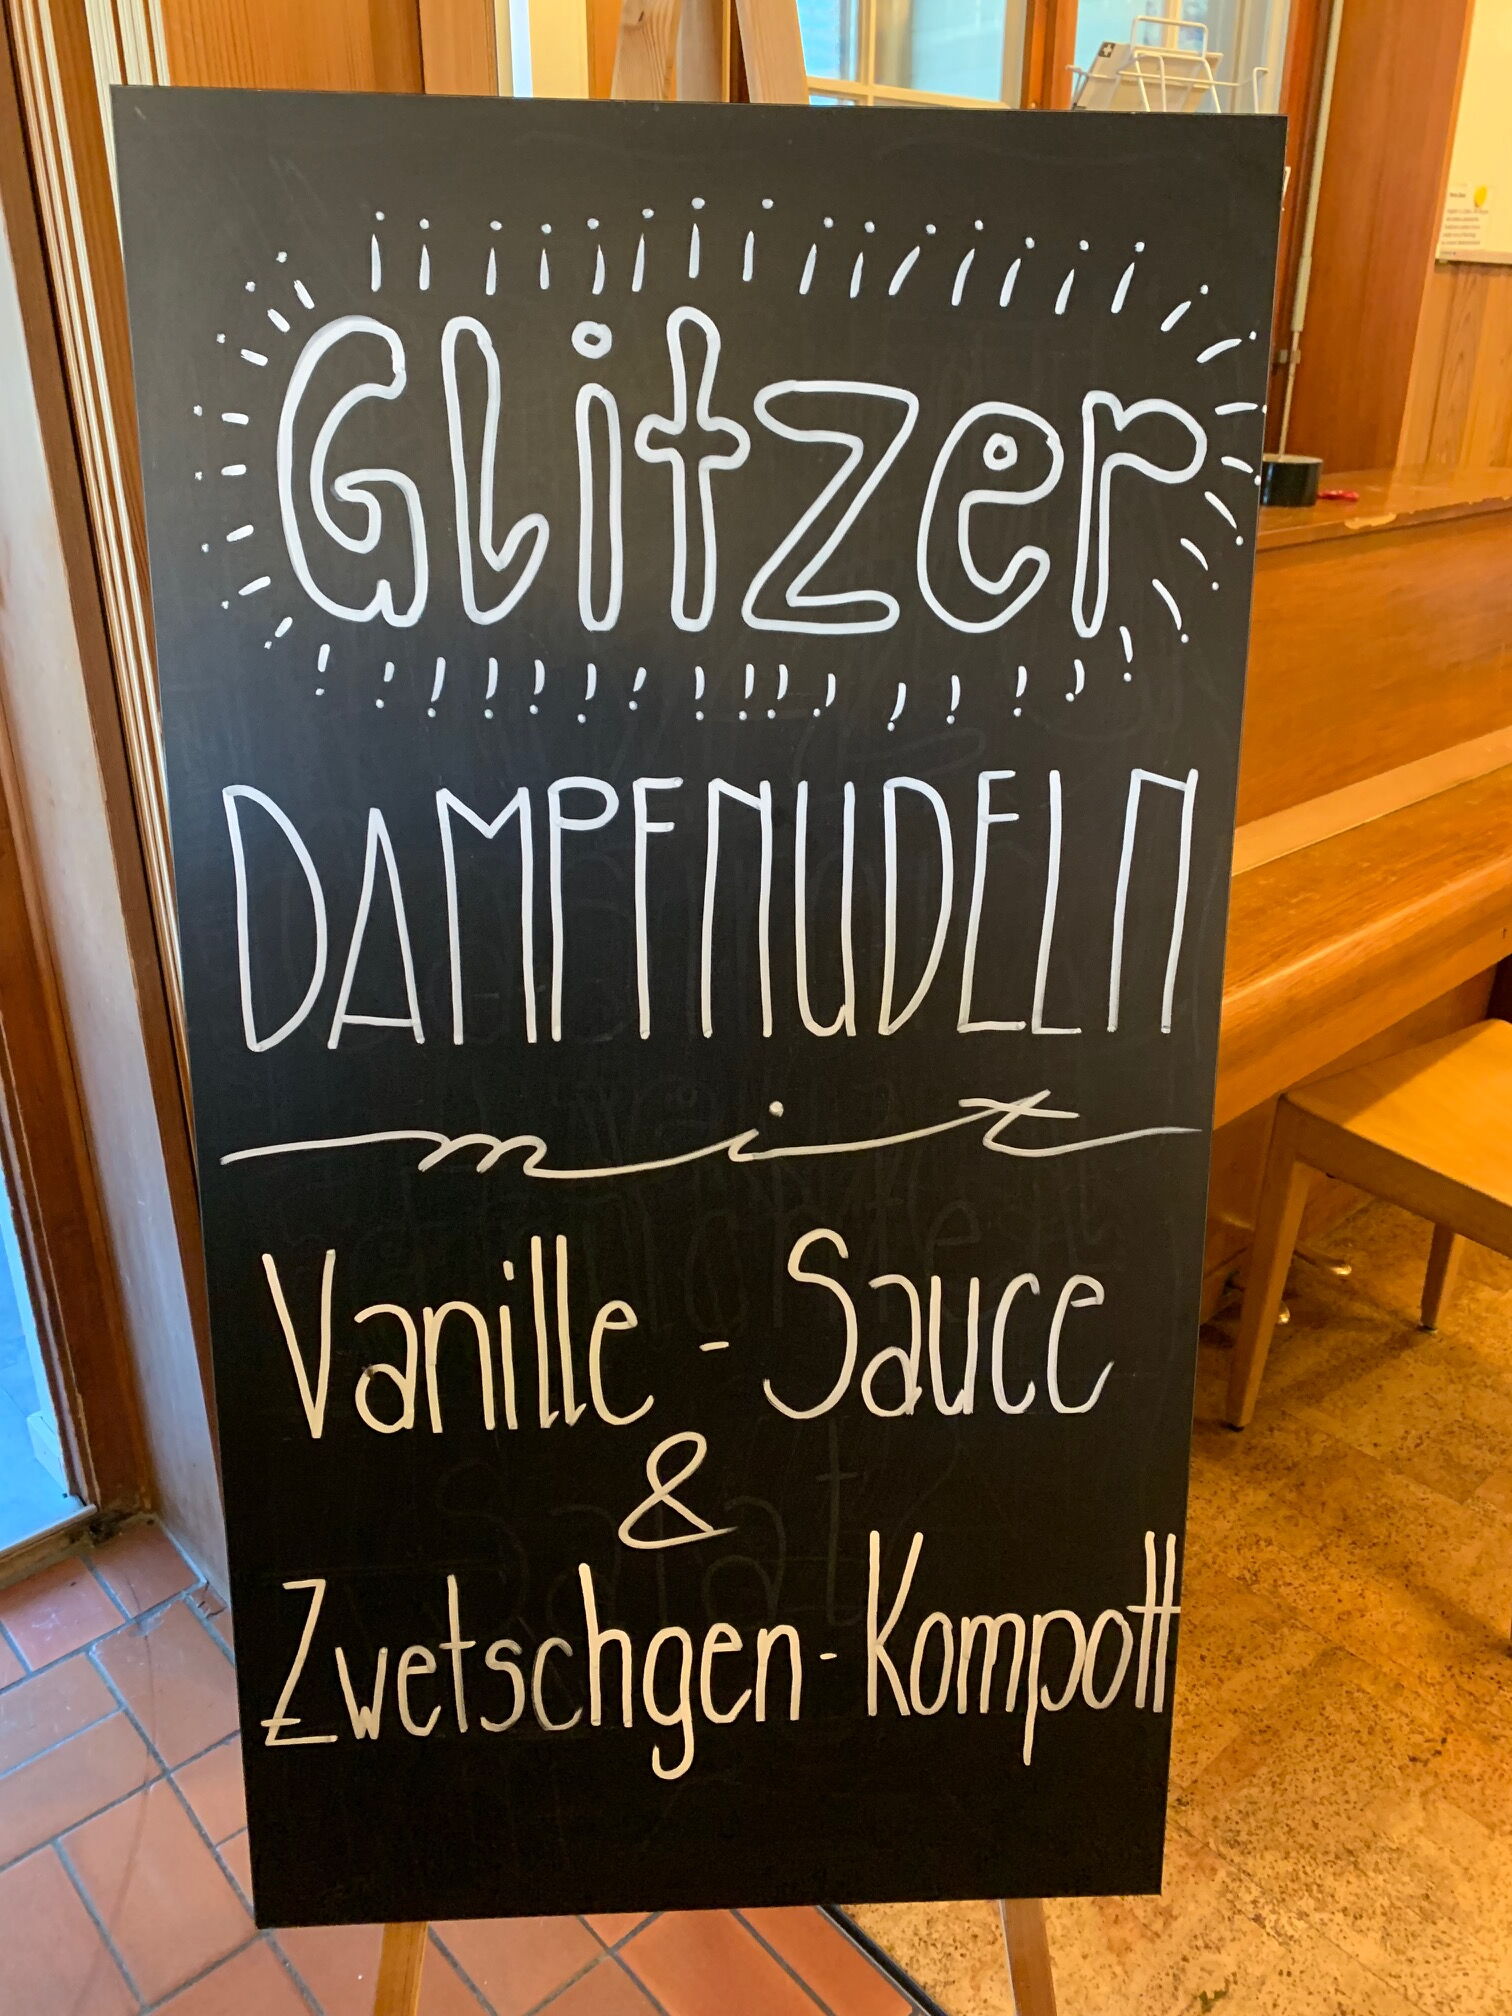 Glitzer
DAMPFNUDELN
mit
Vanille - Sauce
&
Zwetschgen - Kompott